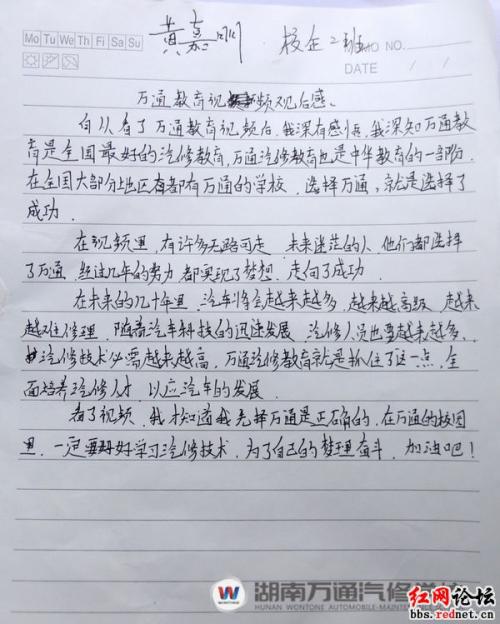 黄嘉 校企二班
Mo Tu We Th Fr Sa Su
MO NO.
DATE / /
万通教育视频观后感.
自从看了万通教育视频后,我深有感悟,我深知万通教
育是全国最好的汽修教育,万通汽修教育也是中华教育的一部份.
在全国大部分地区有都有万通的学校.选择万通,就是选择了
成功.
在视频里,有许多无路可走,未来迷茫的人,他们都选择
了万通,经过几年的努力,都实现了梦想,走向了成功.
在未来的几十年里,汽车将会越来越多,越来越高级,越来
越难修理,随着汽车科技的迅速发展,汽修人员也要越来越多、
汽修技术必需越来越高,万通汽修教育就是抓住了这一点,全
面培养汽修人才,以应汽车的发展.
看了视频,我才知道我选择万通是正确的,在万通的校园
里,一定要好好学习汽修技术,为了自己的梦理奋斗,加油吧!
W WONTONE 湖南万通汽修学校
HUNAN WONTONE AUTOMOBILE-MAINTEN
红网论坛
bbs.rednet.cn